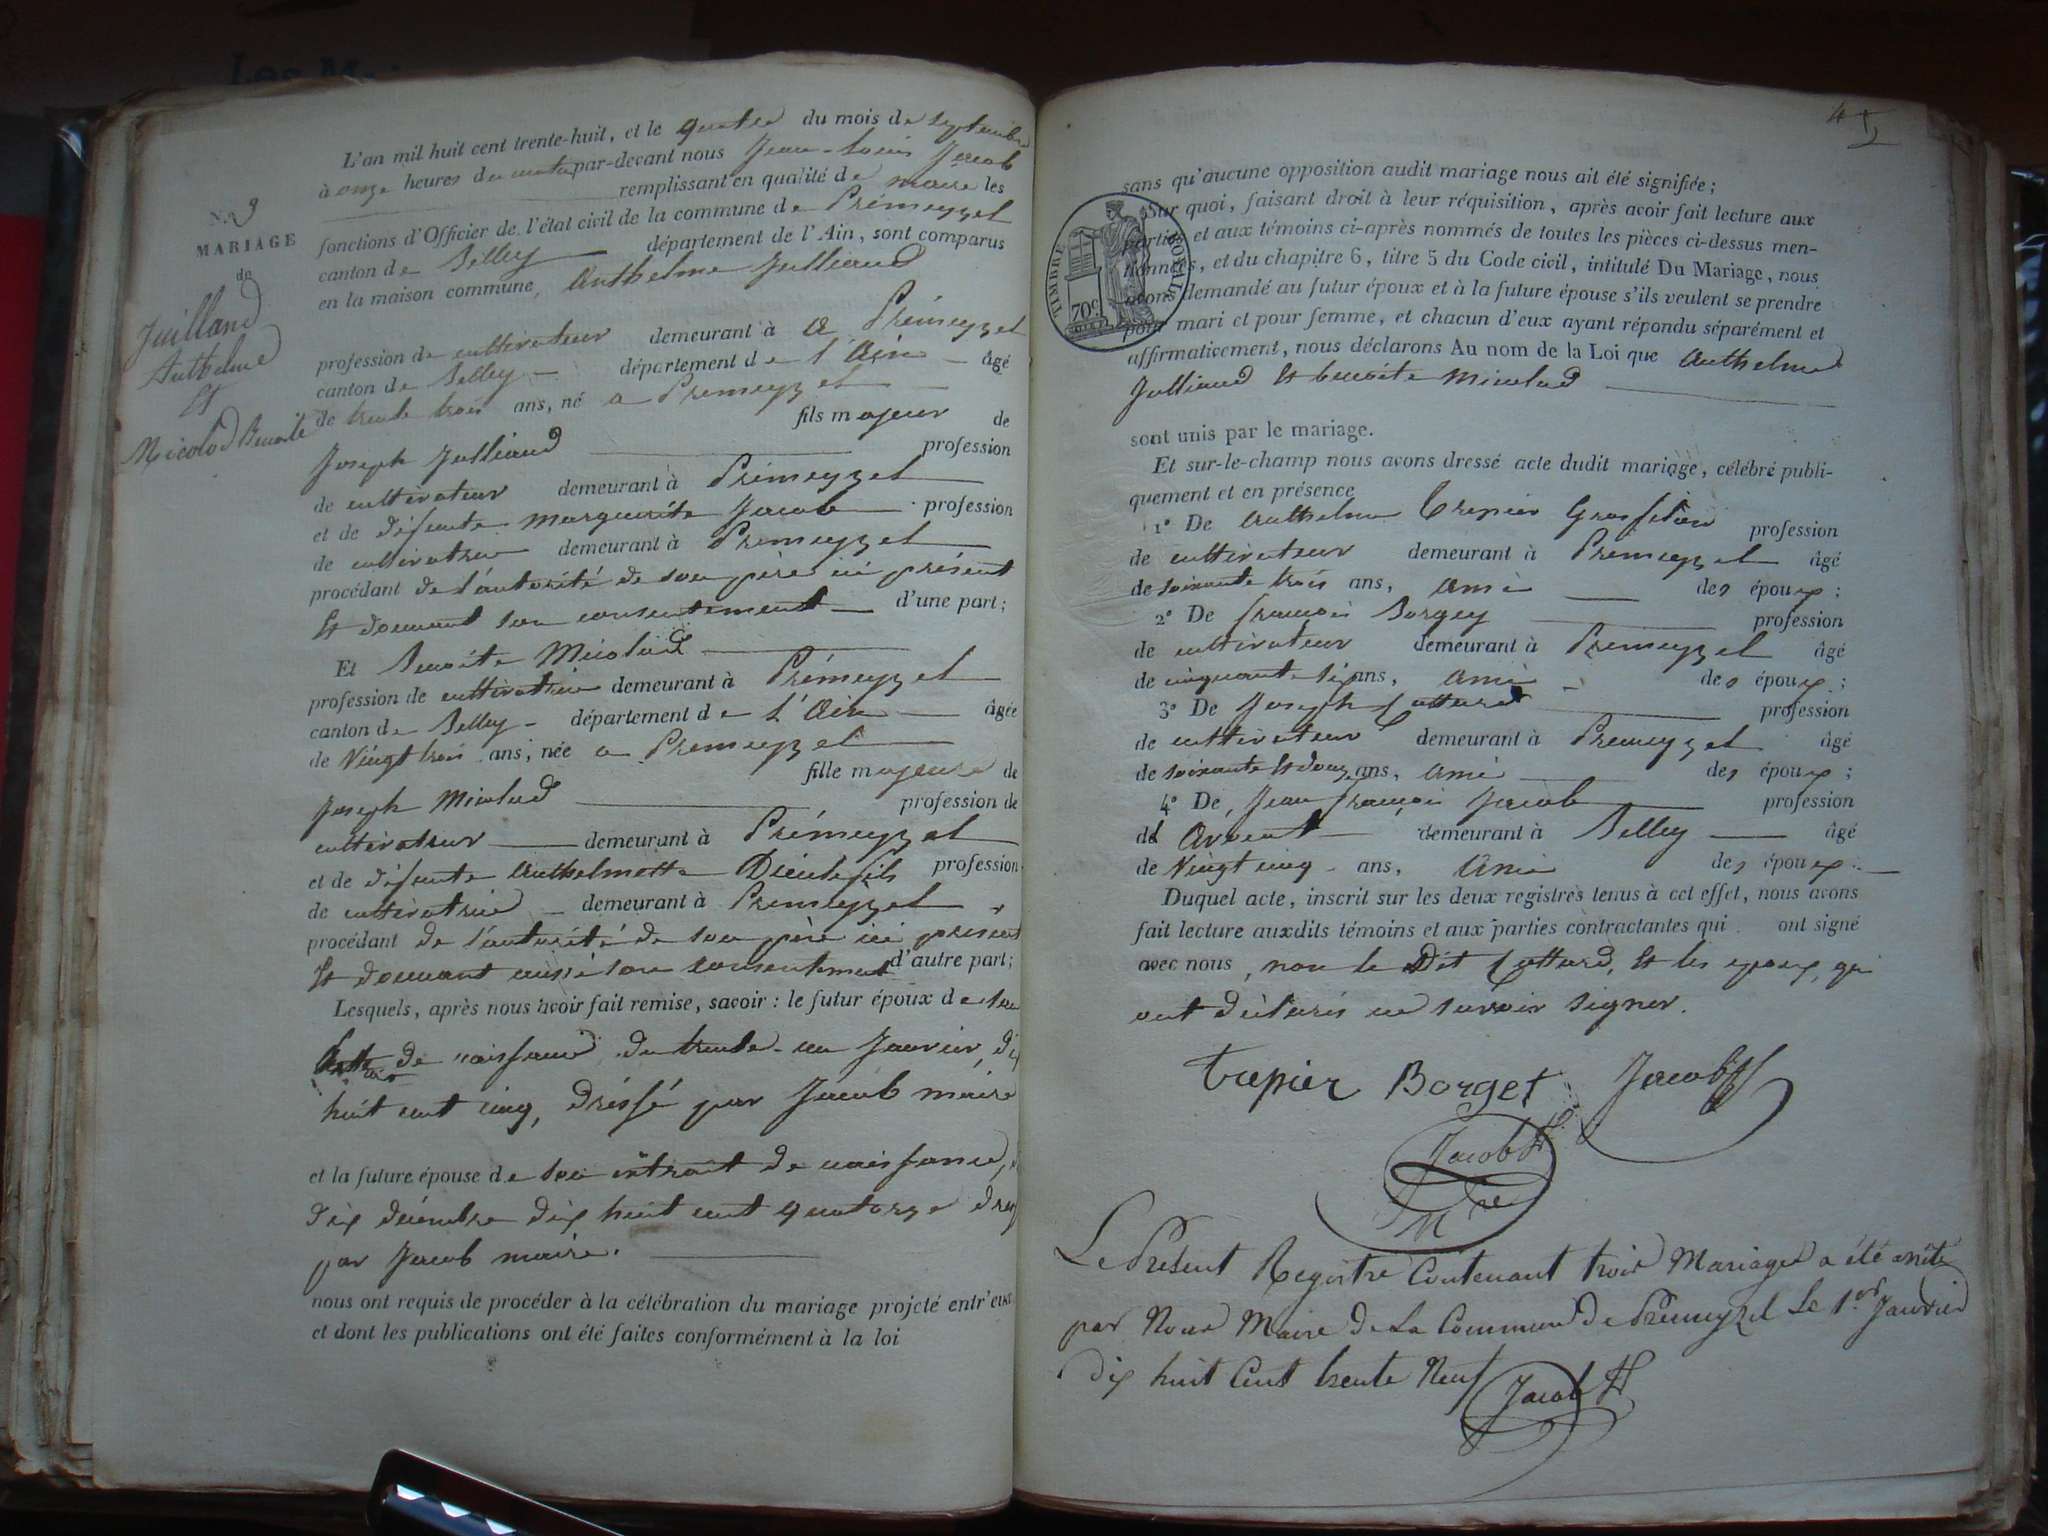 Les M
N.o 3
MARIAGE
de
Juilland
Anthelme
Et
Micolod Benoite
L'an mil huit cent trente-huit, et le quatre du mois de septembre
à onze heures du matin par-devant nous Jean-Louis Jacob
remplissant en qualité de maire les
fonctions d'Officier de l'état civil de la commune de Prémeyzel
canton de Belley département de l'Ain, sont comparus
en la maison commune, Anthelme Julliand
profession de cultivateur demeurant à a Prémeyzel
canton de Belley département de l'Ain âgé
de trente trois ans, né a Premeyzel
fils majeur de
Joseph Julliand profession
de cultivateur demeurant à Prémeyzel
et de défunte Marguerite Jacob profession
de cultivatrice demeurant à Premeyzel
procédant de l'autorité de son père ici présent
Et donnant son consentement d'une part;
Et Benoite Micolod
profession de cultivatrice demeurant à Prémeyzel
canton de Belley département de l'Ain âgée
de Vingt trois ans, née a Premeyzel
fille majeure de
Joseph Micolod profession de
cultivateur demeurant à Prémeyzel
et de défunte Anthelmette Dieulefils profession
de cultivatrice demeurant à Premeyzel
procédant de l'autorité de son père ici présent
Et donnant aussi son consentement d'autre part;
Lesquels, après nous avoir fait remise, savoir: le futur époux de son
acte de naissance du trente-un Janvier dix
huit cent cinq, dréssé par Jacob maire
et la future épouse de son extrait de naissance,
dix décembre dix huit cent quatorze
par Jacob maire.
nous ont requis de procéder à la célébration du mariage projeté entr'eux
et dont les publications ont été faites conformément à la loi
4
TIMBRE ROYAL
70c.
sans qu'aucune opposition audit mariage nous ait été signifiée;
Sur quoi, faisant droit à leur réquisition, après avoir fait lecture aux
parties et aux témoins ci-après nommés de toutes les pièces ci-dessus men-
tionnées, et du chapitre 6, titre 5 du Code civil, intitulé Du Mariage, nous
avons demandé au futur époux et à la future épouse s'ils veulent se prendre
pour mari et pour femme, et chacun d'eux ayant répondu séparément et
affirmativement, nous déclarons Au nom de la Loi que Anthelme
Julliand Et benoite Micolod
sont unis par le mariage.
Et sur-le-champ nous avons dressé acte dudit mariage, célébré publi-
quement et en présence
1° De Anthelme Trepier Grosfilan profession
de cultivateur demeurant à Prémeyzel âgé
de soixante trois ans, ami des époux;
2° De françois Borgey profession
de cultivateur demeurant à Premeyzel âgé
de cinquante six ans, ami des époux;
3° De Joseph Cottard profession
de cultivateur demeurant à Premeyzel âgé
de soixante Et douze ans, ami des époux;
4° De Jean françois Jacob profession
d'Avocat demeurant à Belley âgé
de Vingt cinq ans, Ami des époux.
Duquel acte, inscrit sur les deux registres tenus à cet effet, nous avons
fait lecture auxdits témoins et aux parties contractantes qui ont signé
avec nous, non le Dit Cottard, Et les epoux, qui
ont déclarés ne savoir signer.
trepier Borget Jacob
Jacob
Mre
Le Présent Registre Contenant trois Mariages a été arrêté
par Nous Maire de La Commune de Prémeyzel Le 1.er Janvier
dix huit Cent trente Neuf
Jacob